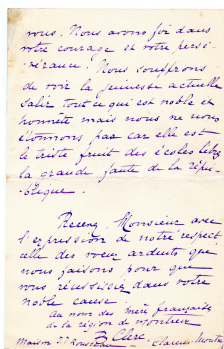 vous. Nous avons foi dans
votre courage et votre persé-
vérance. Nous souffrons
de voir la jeunesse actuelle
salir tout ce qui est noble et
honnête mais nous ne nous
étonnons pas car elle est
le triste fruit des écoles laïq
la grande faute de la répu-
blique.
Recevez, Monsieur avec
l'expression de notre respect
celle des vœux ardents que
nous faisons pour que
vous réussissiez dans votre
noble cause.
Au nom des mères françaises
de la région de Montreux
Clerc
Maison J J Rousseau Clarens Montr